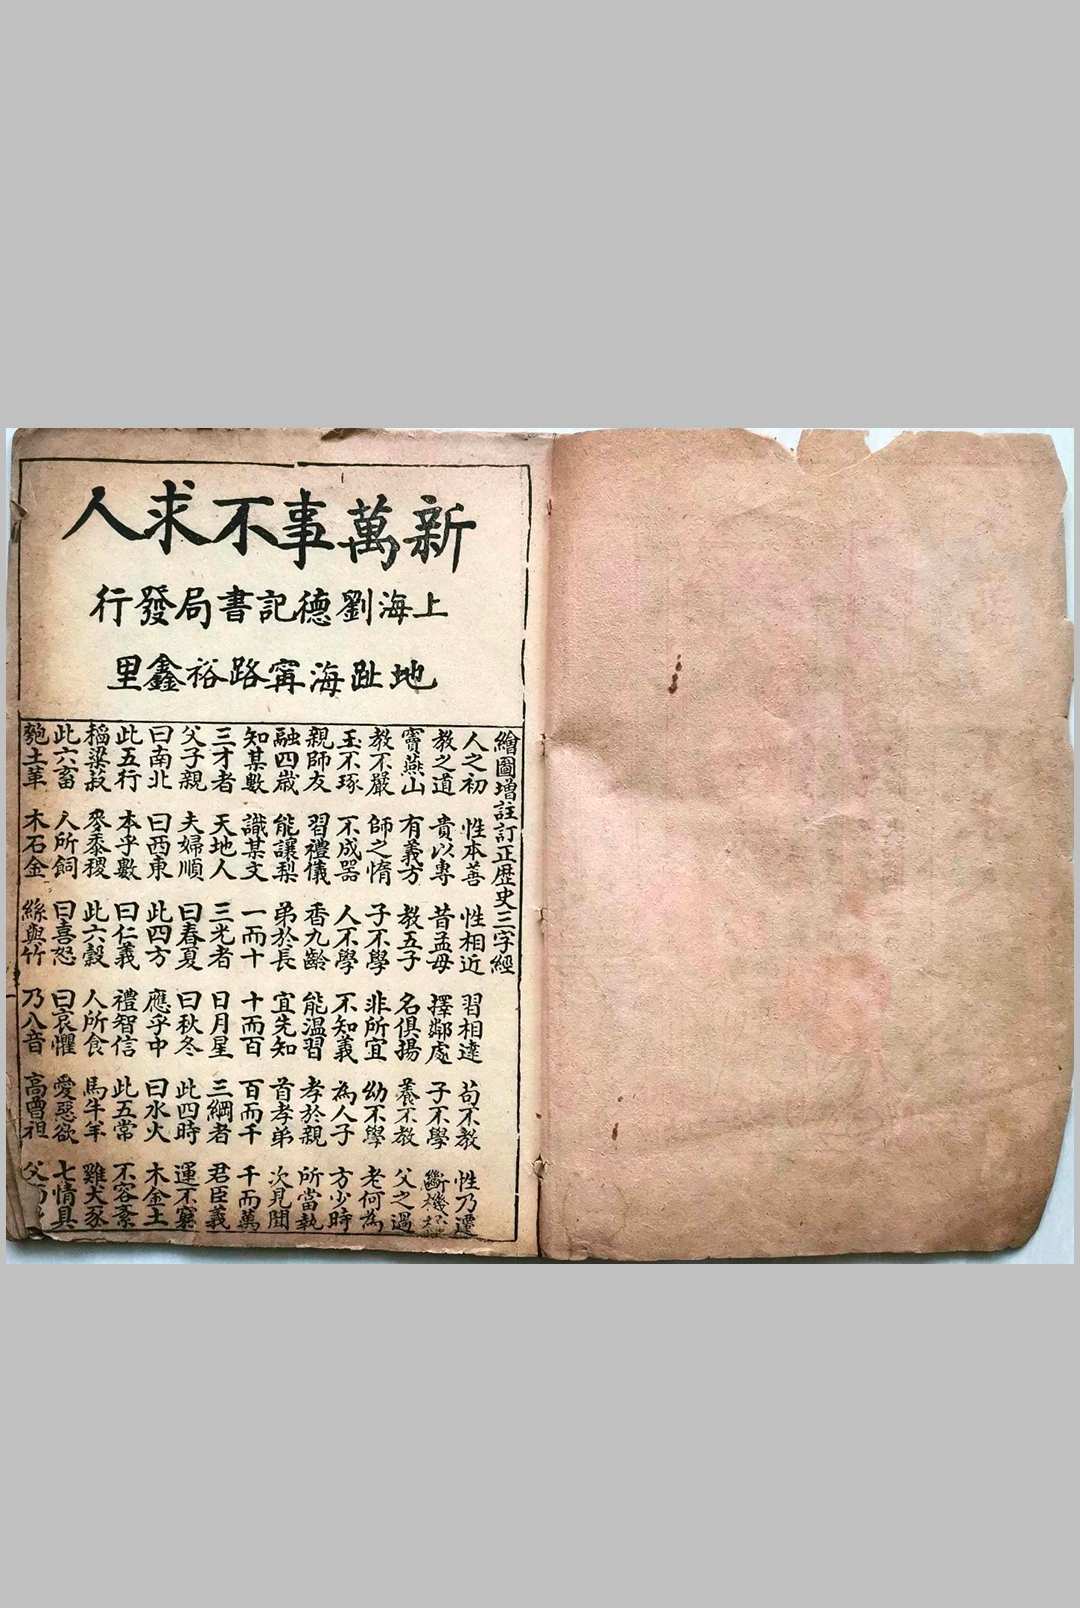 新萬事不求人
上海劉德記書局發行
地趾海甯路裕鑫里
繪圖增註訂正歷史三字經
人之初 性本善 性相近 習相遠 苟不教 性乃遷
教之道 貴以專 昔孟母 擇鄰處 子不學 斷機
竇燕山 有義方 教五子 名俱揚 養不教 父之過
教不嚴 師之惰 子不學 非所宜 幼不學 老何為
玉不琢 不成器 人不學 不知義 為人子 方少時
親師友 習禮儀 香九齡 能溫習 孝於親 所當執
融四歲 能讓梨 弟於長 宜先知 首孝弟 次見聞
知某數 識某文 一而十 十而百 百而千 千而萬
三才者 天地人 三光者 日月星 三綱者 君臣義
父子親 夫婦順 曰春夏 曰秋冬 此四時 運不窮
曰南北 曰西東 此四方 應乎中 曰水火 木金土
此五行 本乎數 曰仁義 禮智信 此五常 不容紊
稻粱菽 麥黍稷 此六穀 人所食 馬牛羊 雞犬豕
此六畜 人所飼 曰喜怒 曰哀懼 愛惡欲 七情具
匏土革 木石金 絲與竹 乃八音 高曾祖 父